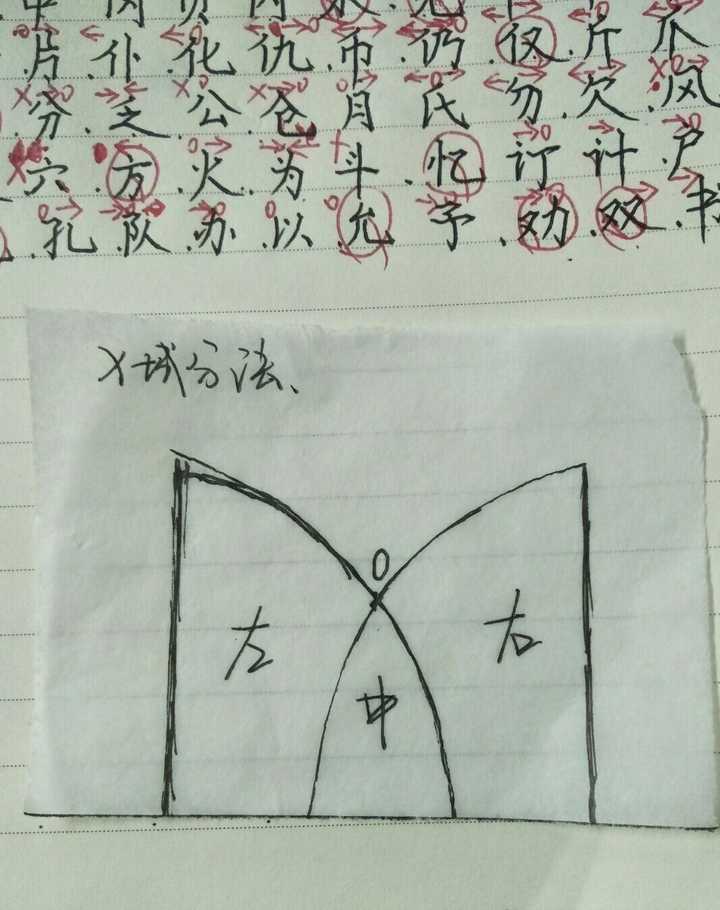 片.仆.化.仇.币.仍.仅.斤.爪
.分.乏.公.仓.月.氏.勿.欠.风
.穴.方.火.为.斗.忆.订.计.户
.孔.队.办.以.允.予.劝.双.书
X域分法、
0
左
右
中